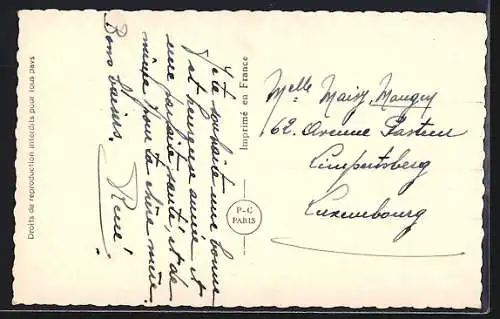 Je te souhaite une bonne
et heureuse année et
une parfaite santé, et de
même pour ta chère mère.
Bons baisers.
René!
Imprimé en France
P-C
PARIS
Melle Maisy Mangey
62, Avenue Pasteur
Limpertsberg
Luxembourg
Droits de reproduction interdits pour tous pays